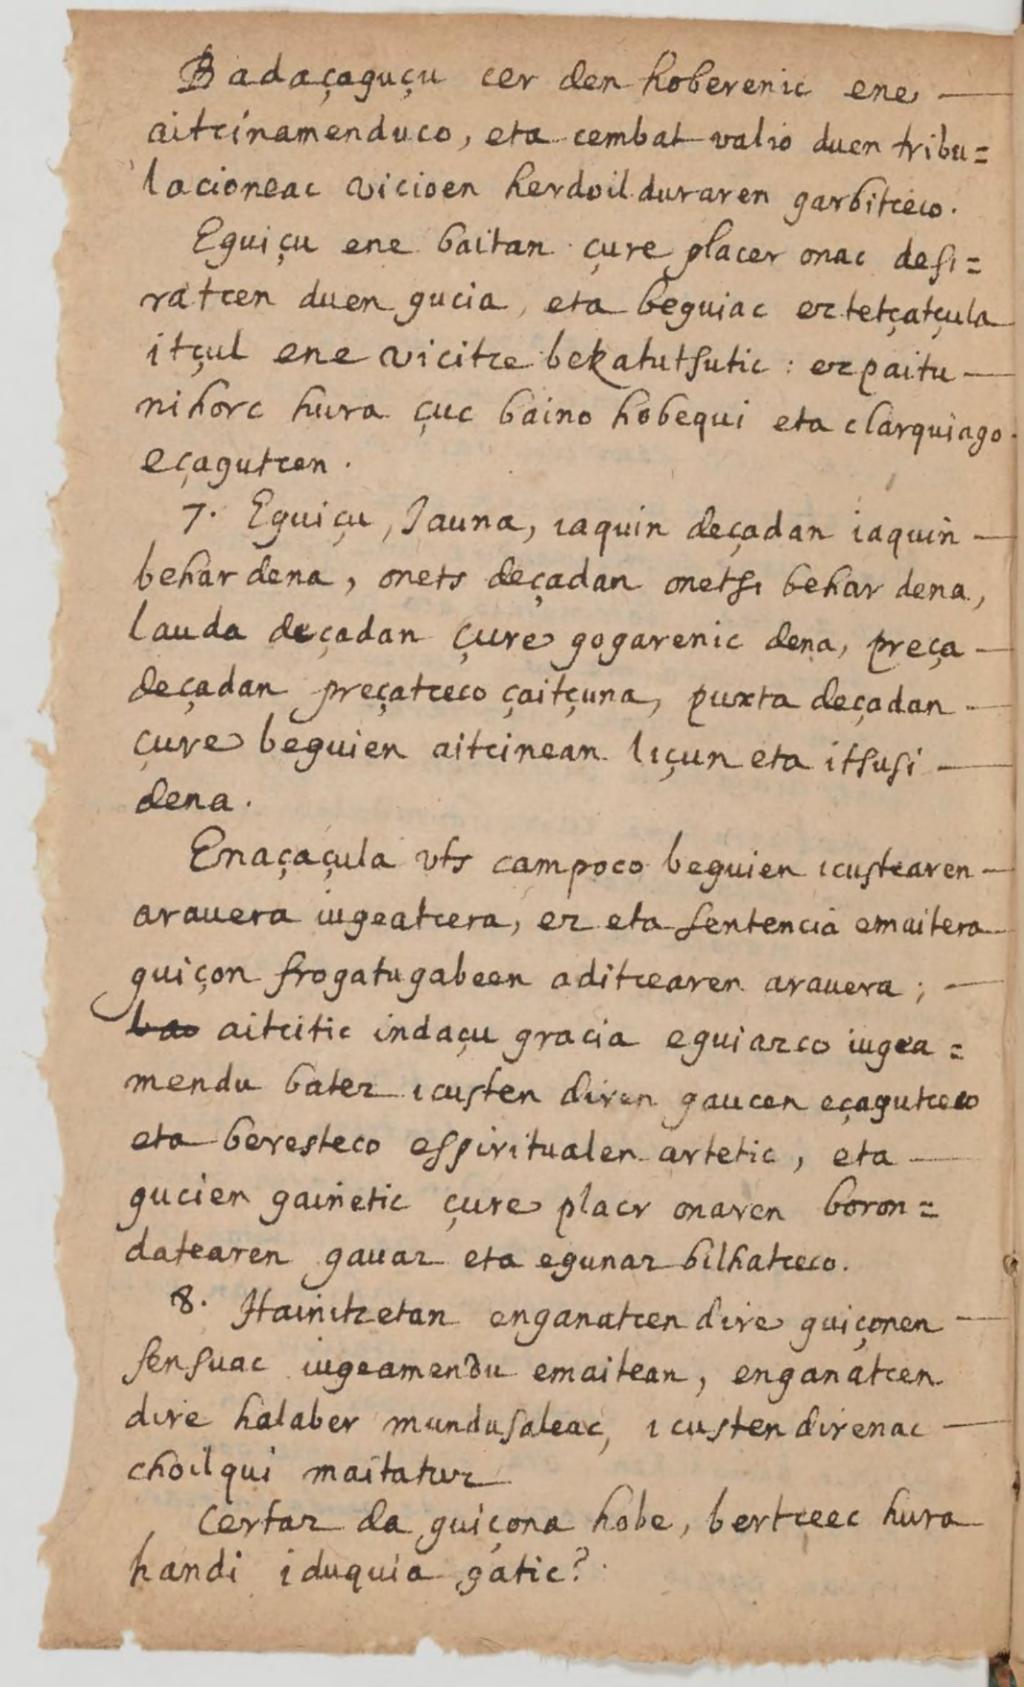 Badaçaguçu cer den hoberenic ene
aitcinamenduco, eta cembat valio duen tribu=
lacioneac vicioen herdoil duraren garbitceco.
Eguiçu ene baitan çure placer onac desi=
ratcen duen gucia, eta beguiac eztetçatçula
itçul ene vicitze bekatutsutic : ezpaitu
nihorc hura çuc baino hobequi eta clarquiago
eçagutcen.
7. Eguiçu, Jauna, iaquin deçadan iaquin
behar dena, onets deçadan onetsi behar dena,
lauda deçadan çure gogarenic dena, preça
deçadan preçatceco çaitçuna, puxta deçadan
çure beguien aitcinean liçun eta itsusi
dena.
Enaçaçula uts campoco beguien icustearen
arauera iugeatcera, ez eta sentencia emaitera
guiçon frogatugabeen aditcearen arauera ;
bao aitcitic indaçu gracia eguiazco iugea=
mendu batez icusten diren gaucen eçagutceco
eta beresteco espiritualen artetic, eta
gucien gainetic çure placer onaren boron=
datearen gauaz eta egunaz bilhatceco.
8. Hainitzetan enganatcen dire guiçonen
sensuac iugeamendu emaitean, enganatcen
dire halaber mundusaleac, icusten direnac
choilqui maitatuz
Certaz da guiçona hobe, bertceec hura
handi iduquia gatic?